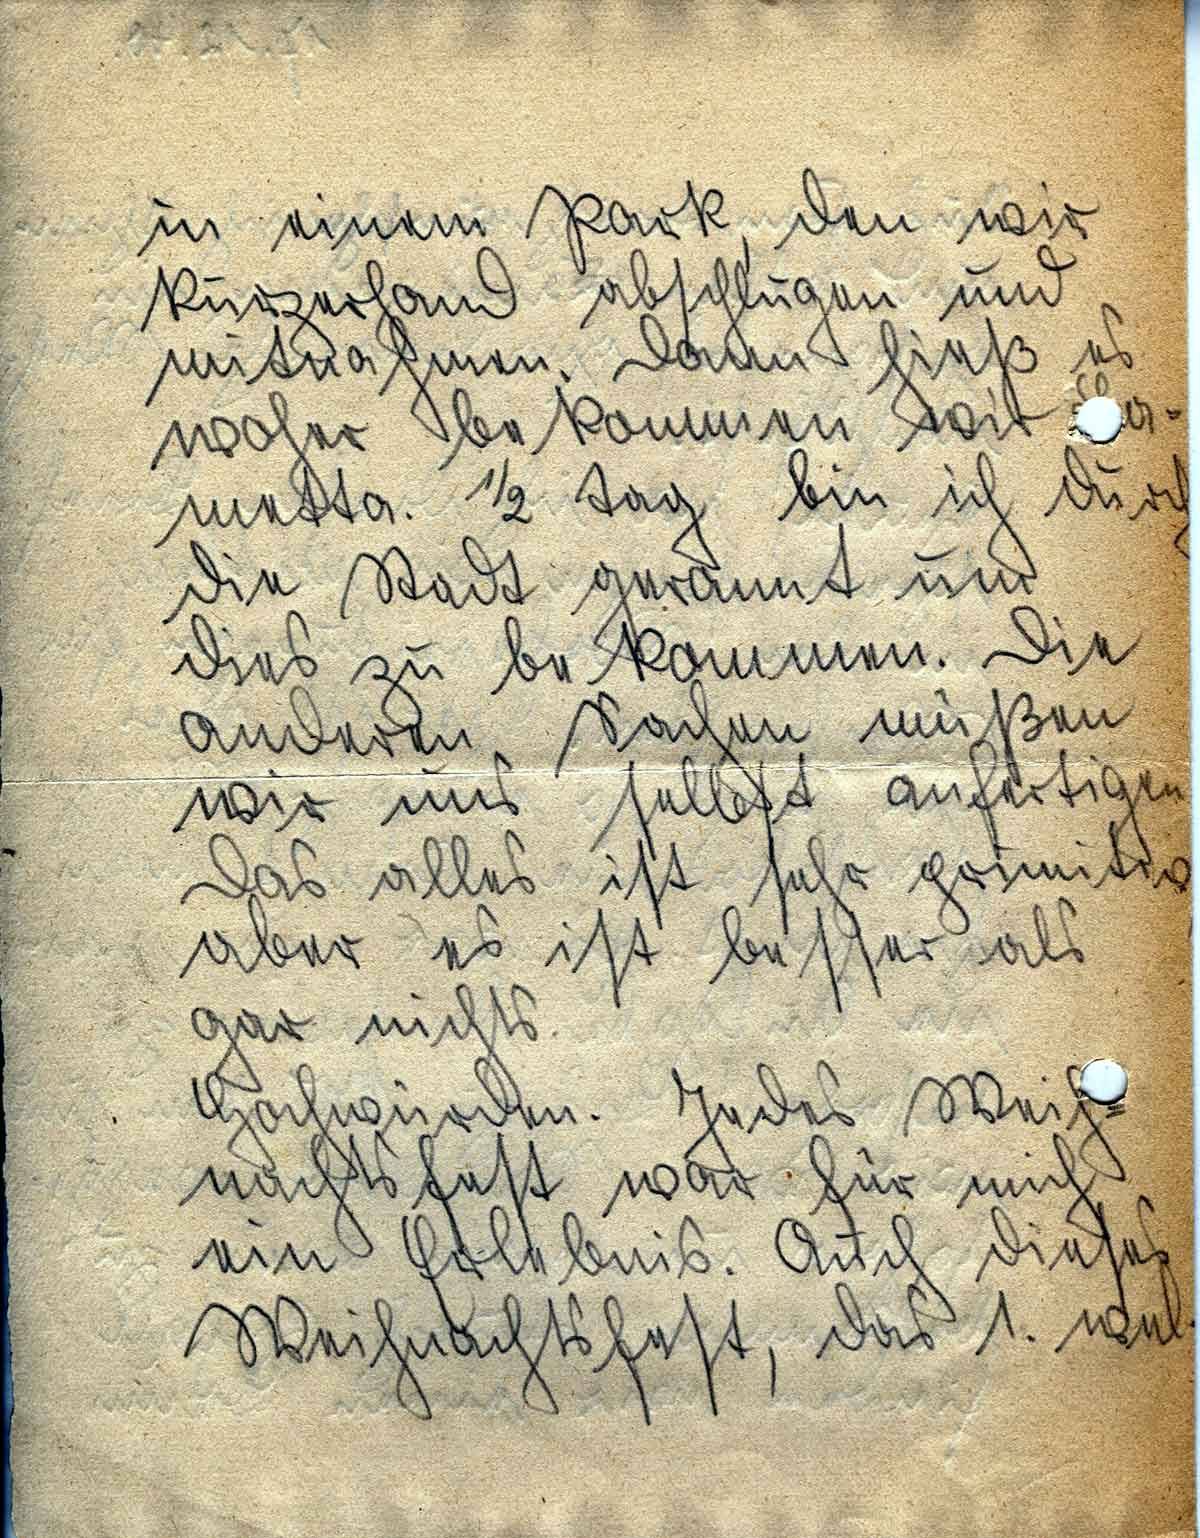 in einem Park, den wir
kurzerhand abschlugen und
mitnahmen. Dann hieß es
woher bekommen wir La-
metta. 1/2 tag bin ich durch
die Stadt gerannt um
dies zu bekommen. Die
anderen Sachen müßen
wir uns selbst anfertigen
Das alles ist sehr primitiv,
aber es ist besser als
gar nichts.
Hochwürden. Jedes Weih=
nachtsfest war für mich
ein Erlebnis. Auch dieses
Weihnachtsfest, das 1. wel-